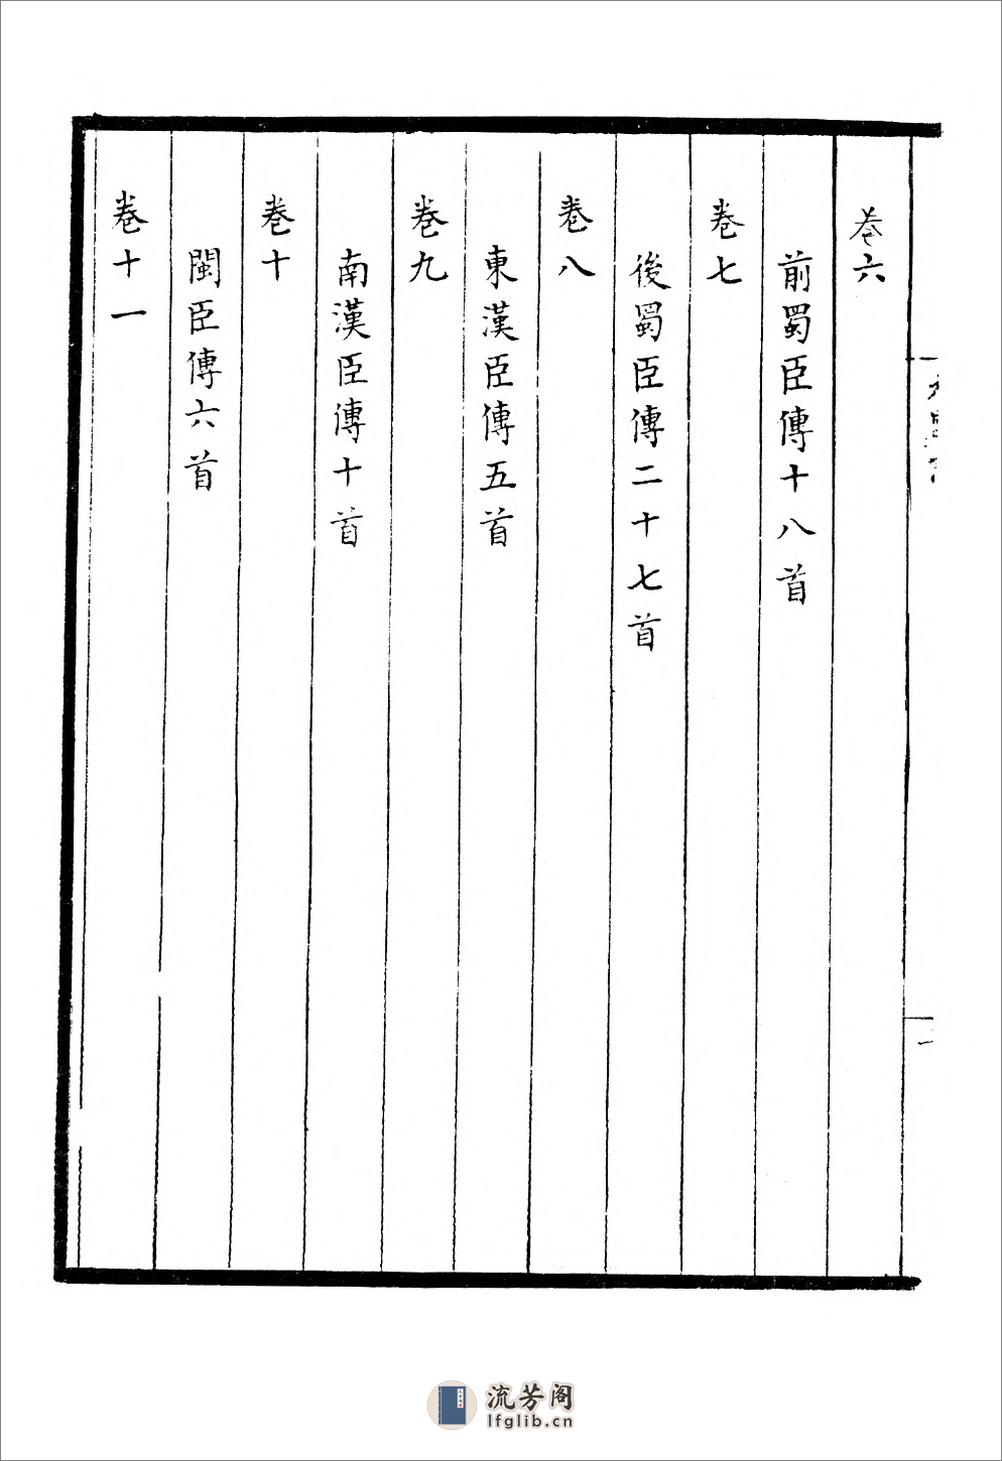 卷六
前蜀臣傳十八首
卷七
後蜀臣傳二十七首
卷八
東漢臣傳五首
卷九
南漢臣傳十首
卷十
閩臣傳六首
卷十一
流芳阁
lfglib.cn